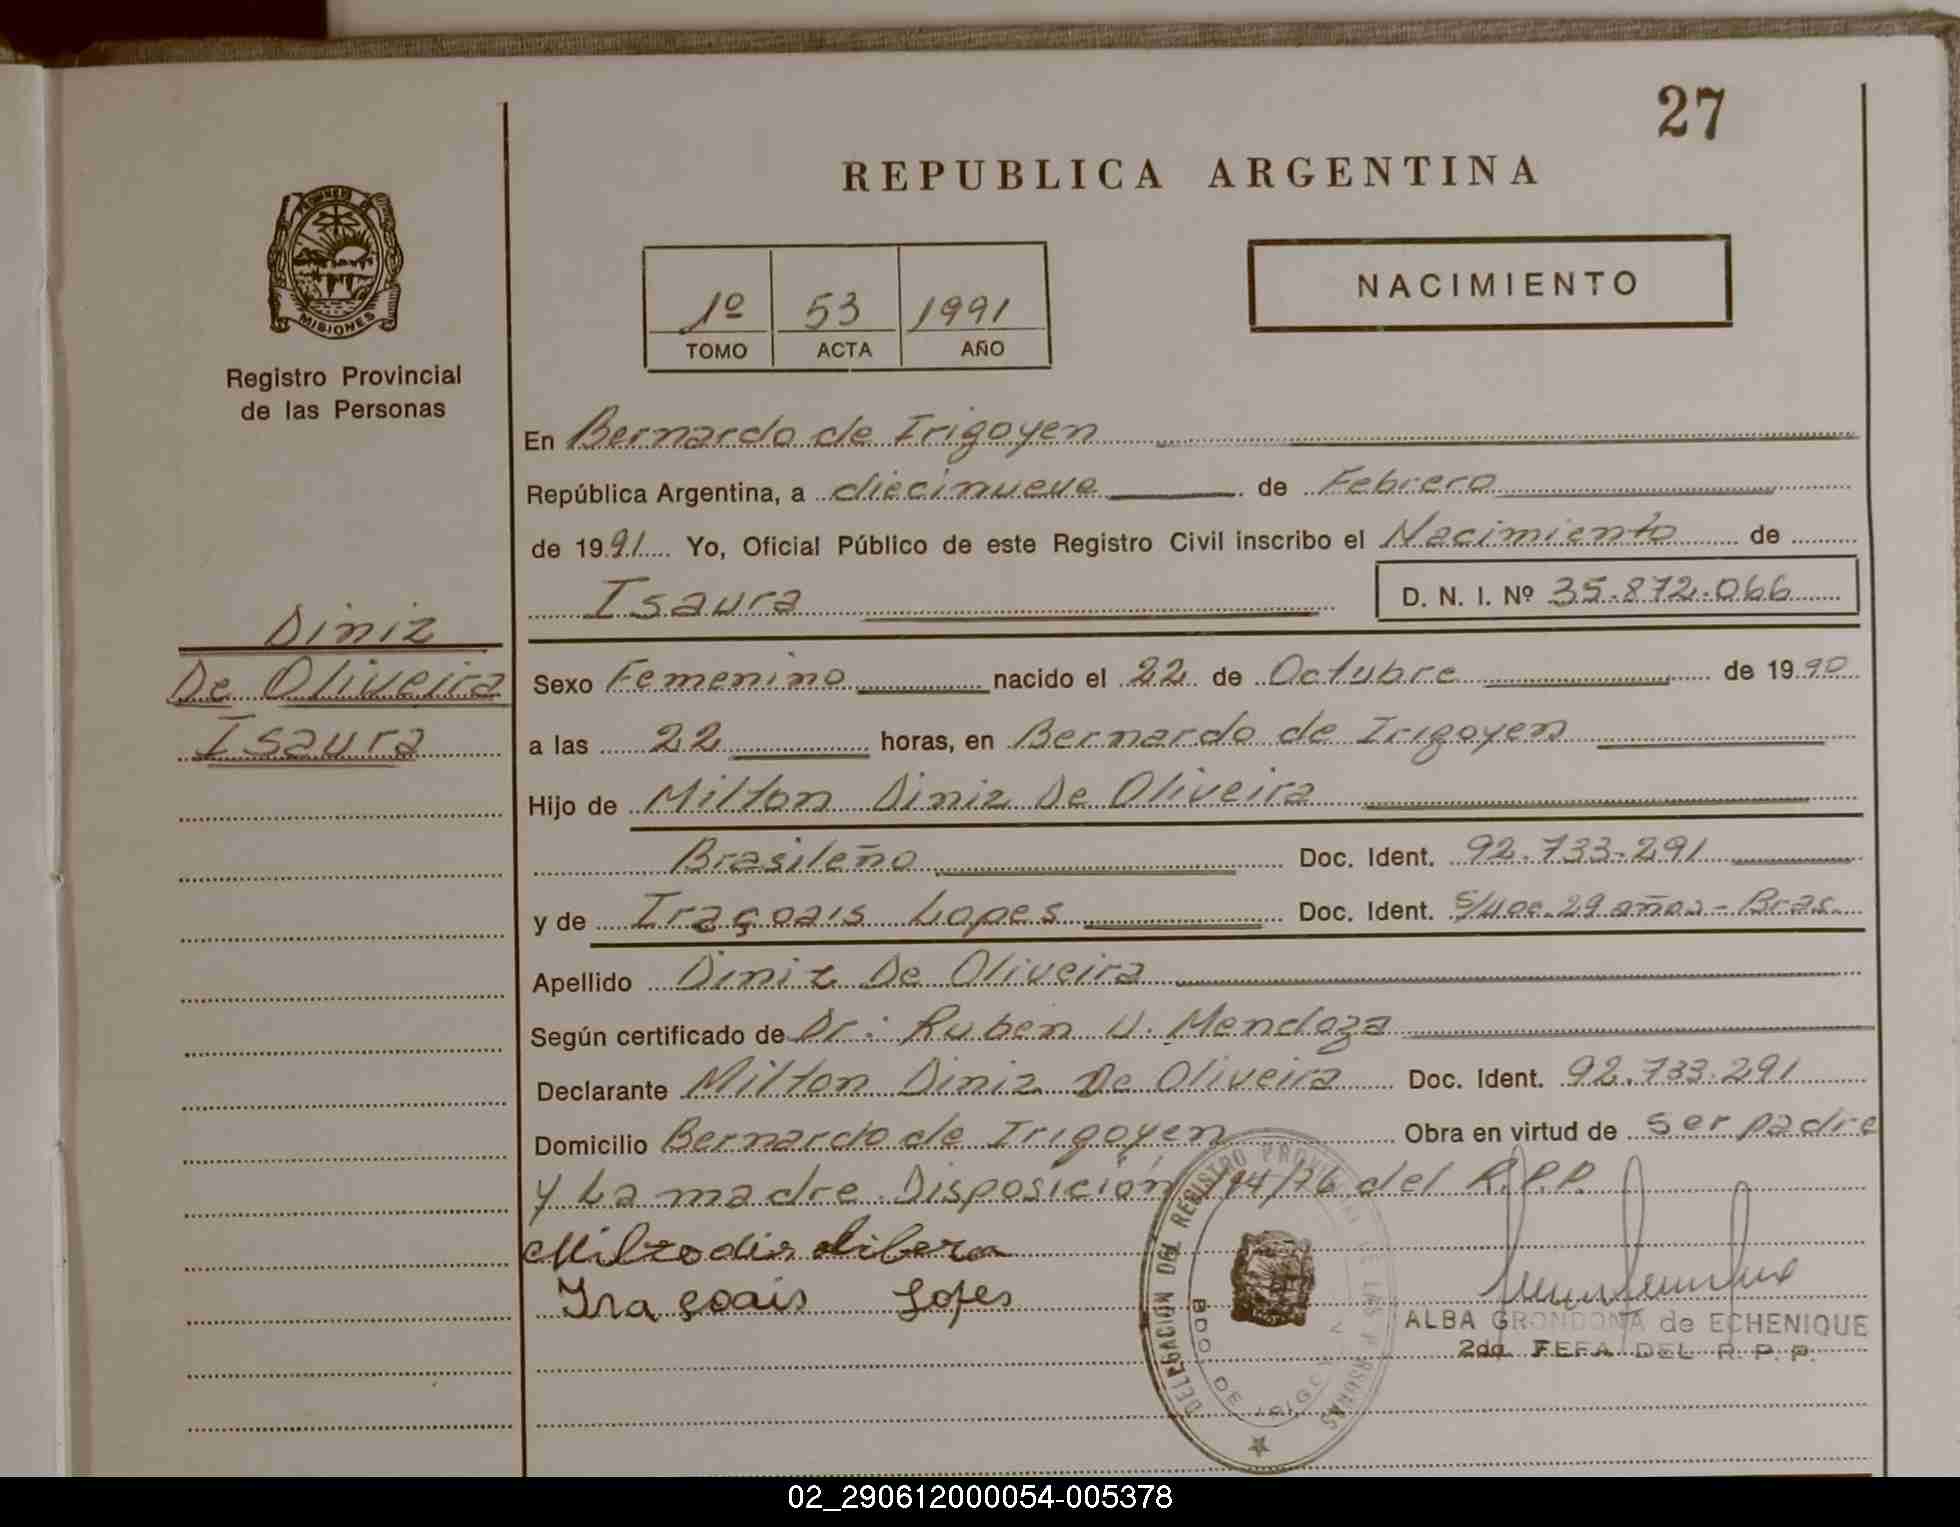 27
REPUBLICA ARGENTINA
MISIONES
Registro Provincial
de las Personas
1º 53 1991
TOMO ACTA AÑO
NACIMIENTO
En Bernardo de Irigoyen
República Argentina, a diecinueve de Febrero
de 1991 Yo, Oficial Público de este Registro Civil inscribo el Nacimiento de
Isaura D. N. I. Nº 35.872.066
Diniz
De Oliveira
Isaura
Sexo Femenino nacido el 22 de Octubre de 1990
a las 22 horas, en Bernardo de Irigoyen
Hijo de Milton Diniz De Oliveira
Brasileño Doc. Ident. 92.733.291
y de Iraçoais Lopes Doc. Ident. 29 años - Bras.
Apellido Diniz De Oliveira
Según certificado de Dr: Ruben U. Mendoza
Declarante Milton Diniz De Oliveira Doc. Ident. 92.733.291
Domicilio Bernardo de Irigoyen Obra en virtud de ser padre
y La madre. Disposición 194/76 del R.P.P.
Iraçoais Lopes
DELEGACION DEL REGISTRO PROVINCIAL DE LAS PERSONAS
BDO DE IRIGOYEN
ALBA GRONDONA de ECHENIQUE
2da FEFA DEL R. P. P.
02_290612000054-005378